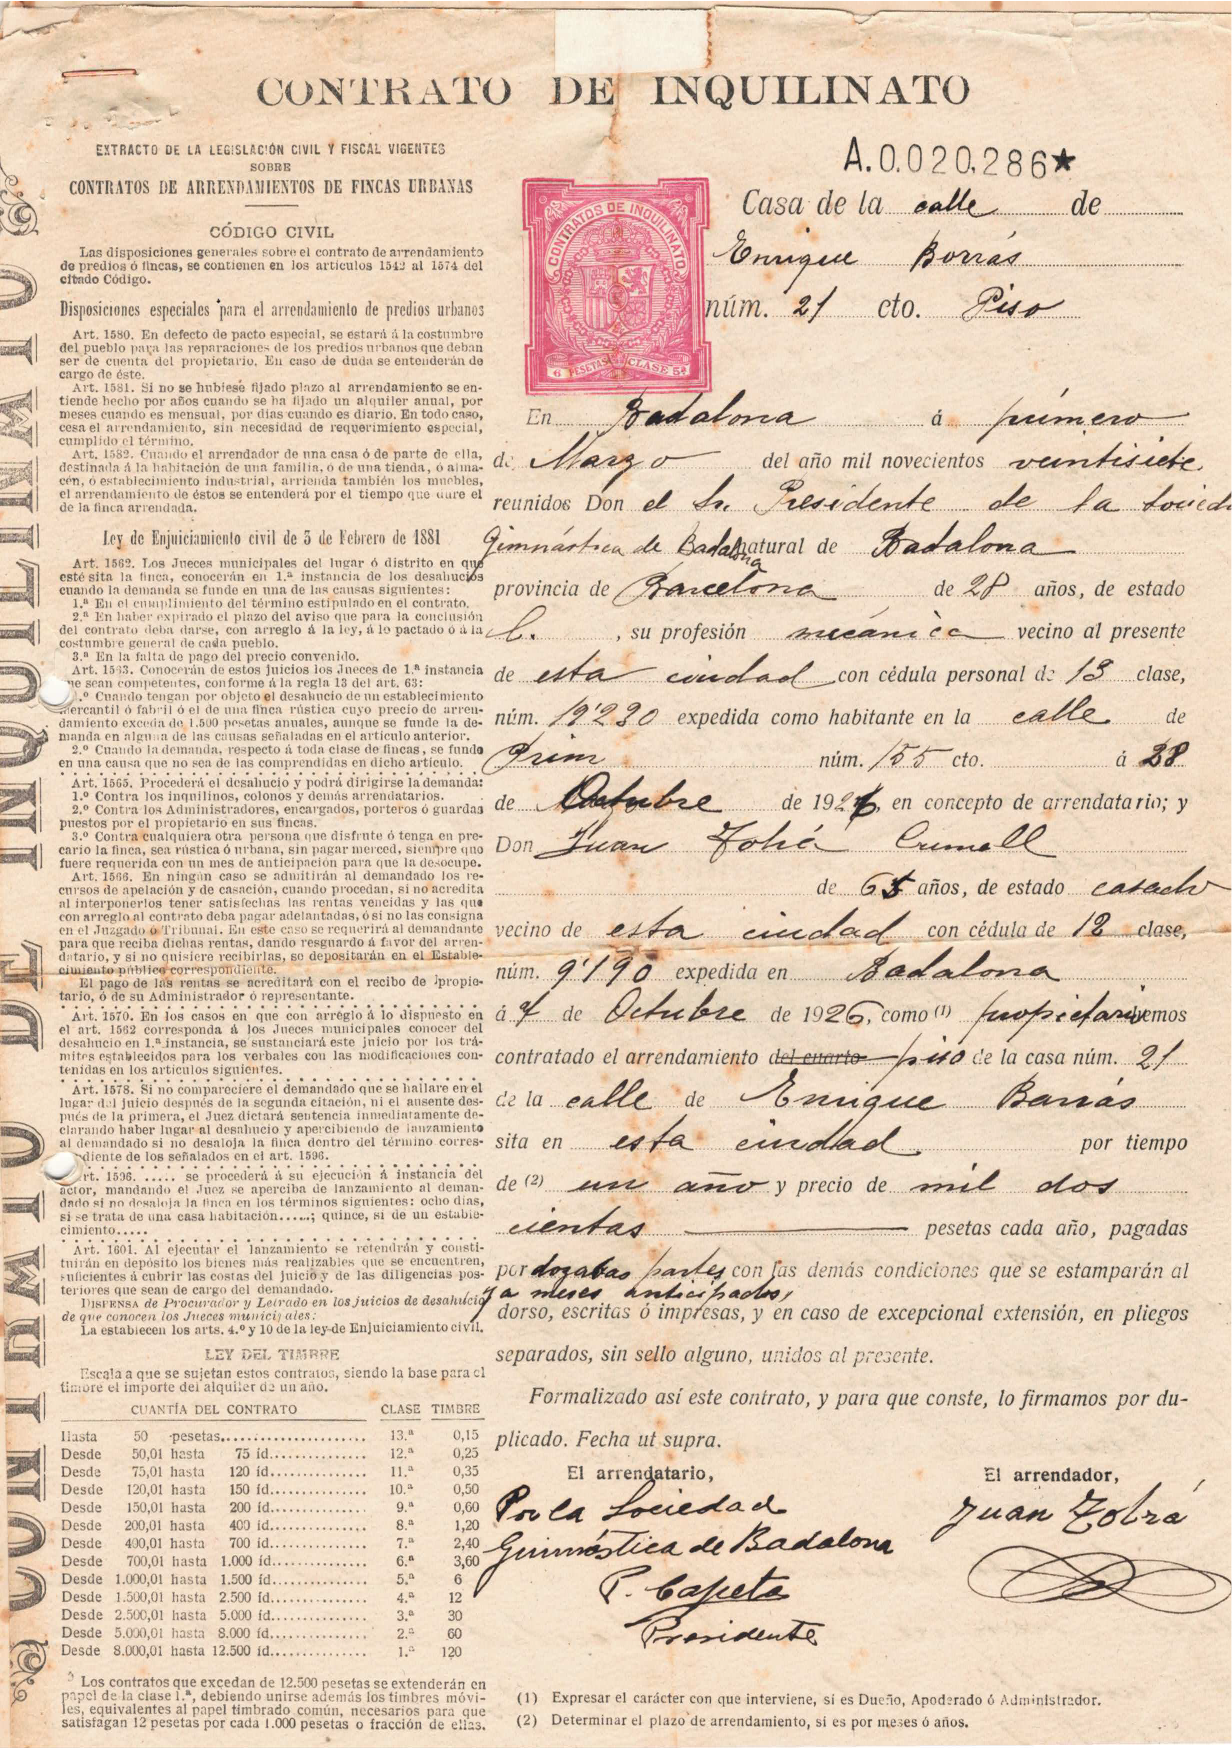 CONTRATO DE INQUILINATO
EXTRACTO DE LA LEGISLACIÓN CIVIL Y FISCAL VIGENTES
SOBRE
CONTRATOS DE ARRENDAMIENTOS DE FINCAS URBANAS
CÓDIGO CIVIL
Las disposiciones generales sobre el contrato de arrendamiento
de predios ó fincas, se contienen en los artículos 1542 al 1574 del
citado Código.
Disposiciones especiales para el arrendamiento de predios urbanos
Art. 1580. En defecto de pacto especial, se estará á la costumbre
del pueblo para las reparaciones de los predios urbanos que deban
ser de cuenta del propietario. En caso de duda se entenderán de
cargo de éste.
Art. 1581. Si no se hubiese fijado plazo al arrendamiento se en-
tiende hecho por años cuando se ha fijado un alquiler anual, por
meses cuando es mensual, por días cuando es diario. En todo caso,
cesa el arrendamiento, sin necesidad de requerimiento especial,
cumplido el término.
Art. 1582. Cuando el arrendador de una casa ó de parte de ella,
destinada á la habitación de una familia, ó de una tienda, ó alma-
cén, ó establecimiento industrial, arrienda también los muebles,
el arrendamiento de éstos se entenderá por el tiempo que dure el
de la finca arrendada.
Ley de Enjuiciamiento civil de 3 de Febrero de 1881
Art. 1562. Los Jueces municipales del lugar ó distrito en que
esté sita la finca, conocerán en 1.ª instancia de los desahucios
cuando la demanda se funde en una de las causas siguientes:
1.ª En el cumplimiento del término estipulado en el contrato.
2.ª En haber expirado el plazo del aviso que para la conclusión
del contrato deba darse, con arreglo á la ley, á lo pactado ó á la
costumbre general de cada pueblo.
3.ª En la falta de pago del precio convenido.
Art. 1563. Conocerán de estos juicios los Jueces de 1.ª instancia
que sean competentes, conforme á la regla 13 del art. 63:
1.º Cuando tengan por objeto el desahucio de un establecimiento
mercantil ó fabril ó el de una finca rústica cuyo precio de arren-
damiento exceda de 1.500 pesetas anuales, aunque se funde la de-
manda en alguna de las causas señaladas en el artículo anterior.
2.º Cuando la demanda, respecto á toda clase de fincas, se funde
en una causa que no sea de las comprendidas en dicho artículo.
Art. 1565. Procederá el desahucio y podrá dirigirse la demanda:
1.º Contra los inquilinos, colonos y demás arrendatarios.
2.º Contra los Administradores, encargados, porteros ó guardas
puestos por el propietario en sus fincas.
3.º Contra cualquiera otra persona que disfrute ó tenga en pre-
cario la finca, sea rústica ó urbana, sin pagar merced, siempre que
fuere requerida con un mes de anticipación para que la desocupe.
Art. 1566. En ningún caso se admitirán al demandado los re-
cursos de apelación y de casación, cuando procedan, si no acredita
al interponerlos tener satisfechas las rentas vencidas y las que
con arreglo al contrato deba pagar adelantadas, ó si no las consigna
en el Juzgado ó Tribunal. En este caso se requerirá al demandante
para que reciba dichas rentas, dando resguardo á favor del arren-
datario, y si no quisiere recibirlas, se depositarán en el Estable-
cimiento público correspondiente.
El pago de las rentas se acreditará con el recibo de propie-
tario, ó de su Administrador ó representante.
Art. 1570. En los casos en que con arreglo á lo dispuesto en
el art. 1562 corresponda á los Jueces municipales conocer del
desahucio en 1.ª instancia, se sustanciará este juicio por los trá-
mites establecidos para los verbales con las modificaciones con-
tenidas en los artículos siguientes.
Art. 1578. Si no compareciere el demandado que se hallare en el
lugar del juicio después de la segunda citación, ni el ausente des-
pués de la primera, el Juez dictará sentencia inmediatamente de-
clarando haber lugar al desahucio y apercibiendo de lanzamiento
al demandado si no desaloja la finca dentro del término corres-
diente de los señalados en el art. 1596.
Art. 1596. ..... se procederá á su ejecución á instancia del
actor, mandando el Juez se aperciba de lanzamiento al deman-
dado si no desaloja la finca en los términos siguientes: ocho días,
si se trata de una casa habitación.....; quince, si de un estable-
cimiento.....
Art. 1601. Al ejecutar el lanzamiento se retendrán y consti-
tuirán en depósito los bienes más realizables que se encuentren,
suficientes á cubrir las costas del juicio y de las diligencias pos-
teriores que sean de cargo del demandado.
DISPENSA de Procurador y Letrado en los juicios de desahucio
de que conocen los Jueces municipales:
La establecen los arts. 4.º y 10 de la ley de Enjuiciamiento civil.
LEY DEL TIMBRE
Escala a que se sujetan estos contratos, siendo la base para el
timbre el importe del alquiler de un año.
CUANTÍA DEL CONTRATO CLASE TIMBRE
Hasta 50 pesetas 13.ª 0,15
Desde 50,01 hasta 75 íd. 12.ª 0,25
Desde 75,01 hasta 120 íd. 11.ª 0,35
Desde 120,01 hasta 150 íd. 10.ª 0,50
Desde 150,01 hasta 200 íd. 9.ª 0,60
Desde 200,01 hasta 400 íd. 8.ª 1,20
Desde 400,01 hasta 700 íd. 7.ª 2,40
Desde 700,01 hasta 1.000 íd. 6.ª 3,60
Desde 1.000,01 hasta 1.500 íd. 5.ª 6
Desde 1.500,01 hasta 2.500 íd. 4.ª 12
Desde 2.500,01 hasta 5.000 íd. 3.ª 30
Desde 5.000,01 hasta 8.000 íd. 2.ª 60
Desde 8.000,01 hasta 12.500 íd. 1.ª 120
Los contratos que excedan de 12.500 pesetas se extenderán en
papel de la clase 1.ª, debiendo unirse además los timbres móvi-
les, equivalentes al papel timbrado común, necesarios para que
satisfagan 12 pesetas por cada 1.000 pesetas o fracción de ellas.
CONTRATO DE INQUILINATO
A.0.020.286★
CONTRATOS DE INQUILINATO
6 PESETAS CLASE 5ª
Casa de la calle de
Enrique Borrás
núm. 21 cto. Piso
En Badalona á primero
de Marzo del año mil novecientos veintisiete
reunidos Don el Sr. Presidente de la Socied
Gimnástica de Badalona natural de Badalona
provincia de Barcelona de 28 años, de estado
C. , su profesión mecánico vecino al presente
de esta ciudad con cédula personal de 13 clase,
núm. 19'230 expedida como habitante en la calle de
Prim núm. 155 cto. á 28
de Octubre de 1926, en concepto de arrendatario; y
Don Juan
de 65 años, de estado casado
vecino de esta ciudad con cédula de 12 clase,
núm. 9'190 expedida en Badalona
á 7 de Octubre de 1926, como (1) propietario hemos
contratado el arrendamiento del cuarto piso de la casa núm. 21
de la calle de Enrique Barrás
sita en esta ciudad por tiempo
de (2) un año y precio de mil dos
cientas pesetas cada año, pagadas
por dozabas partes con las demás condiciones que se estamparán al
y a meses anticipados,
dorso, escritas ó impresas, y en caso de excepcional extensión, en pliegos
separados, sin sello alguno, unidos al presente.
Formalizado así este contrato, y para que conste, lo firmamos por du-
plicado. Fecha ut supra.
El arrendatario, El arrendador,
Por la Sociedad
Gimnástica de Badalona
Juan
Presidente
(1) Expresar el carácter con que interviene, si es Dueño, Apoderado ó Administrador.
(2) Determinar el plazo de arrendamiento, si es por meses ó años.